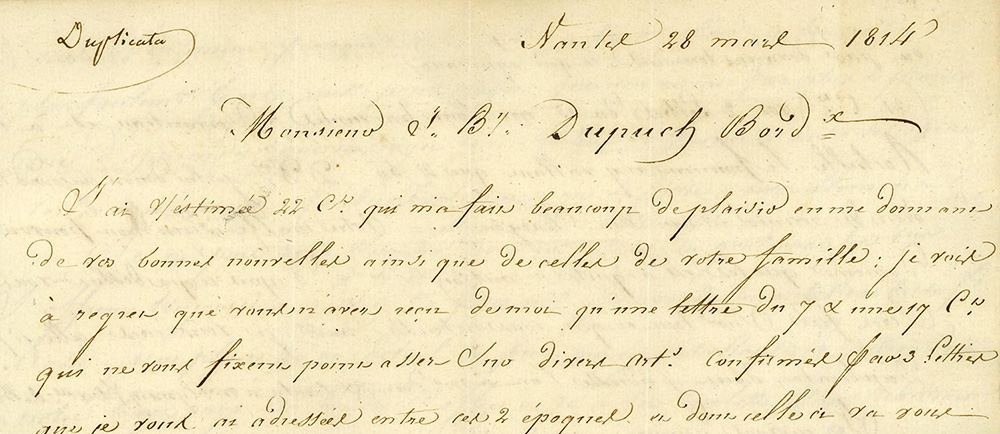 Duplicata
Nantes 28 mars 1814
Monsieur J. Bte. Dupuch Bordx
J'ai V/estimée 22 Ct. qui m'a fait beaucoup de plaisir en me donnant
de vos bonnes nouvelles ainsi que de celles de votre famille ; je vois
à regret que vous n'avez reçu de moi qu'une lettre du 7 & une 17 Ct.
qui ne vous fixent point assez sur divers arts. confirmés par 3 lettres
que je vous ai adressées entre ces 2 époques et dont celle ci va vous